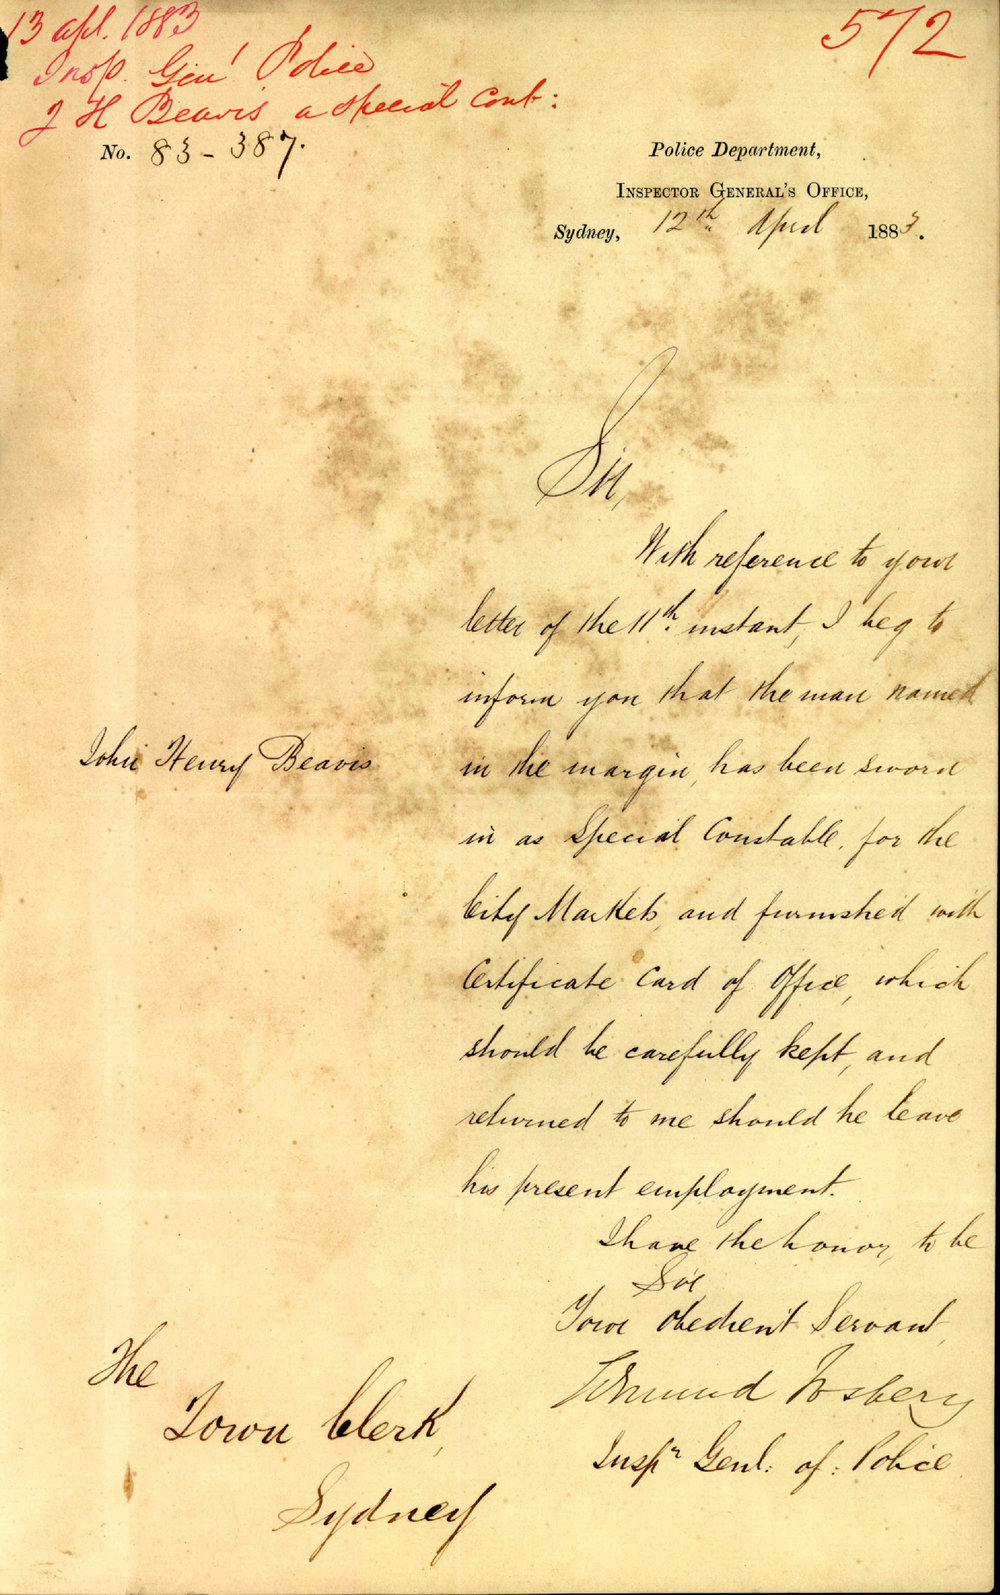 13 apl. 1883
Insp. Gen'l Police
J H Beavis a special Cont:
572
No. 83-387.
Police Department,
INSPECTOR GENERAL'S OFFICE,
Sydney, 12th April 1883.
Sir,
With reference to your
letter of the 11th instant, I beg to
inform you that the man named
John Henry Beavis
in the margin, has been sworn
in as Special Constable, for the
City Markets, and furnished with
Certificate Card of Office, which
should be carefully kept, and
returned to me should he leave
his present employment.
I have the honor, to be
Sir
Your obedient Servant,
Edmund Fosbery
Inspr Genl: of: Police
The
Town Clerk,
Sydney